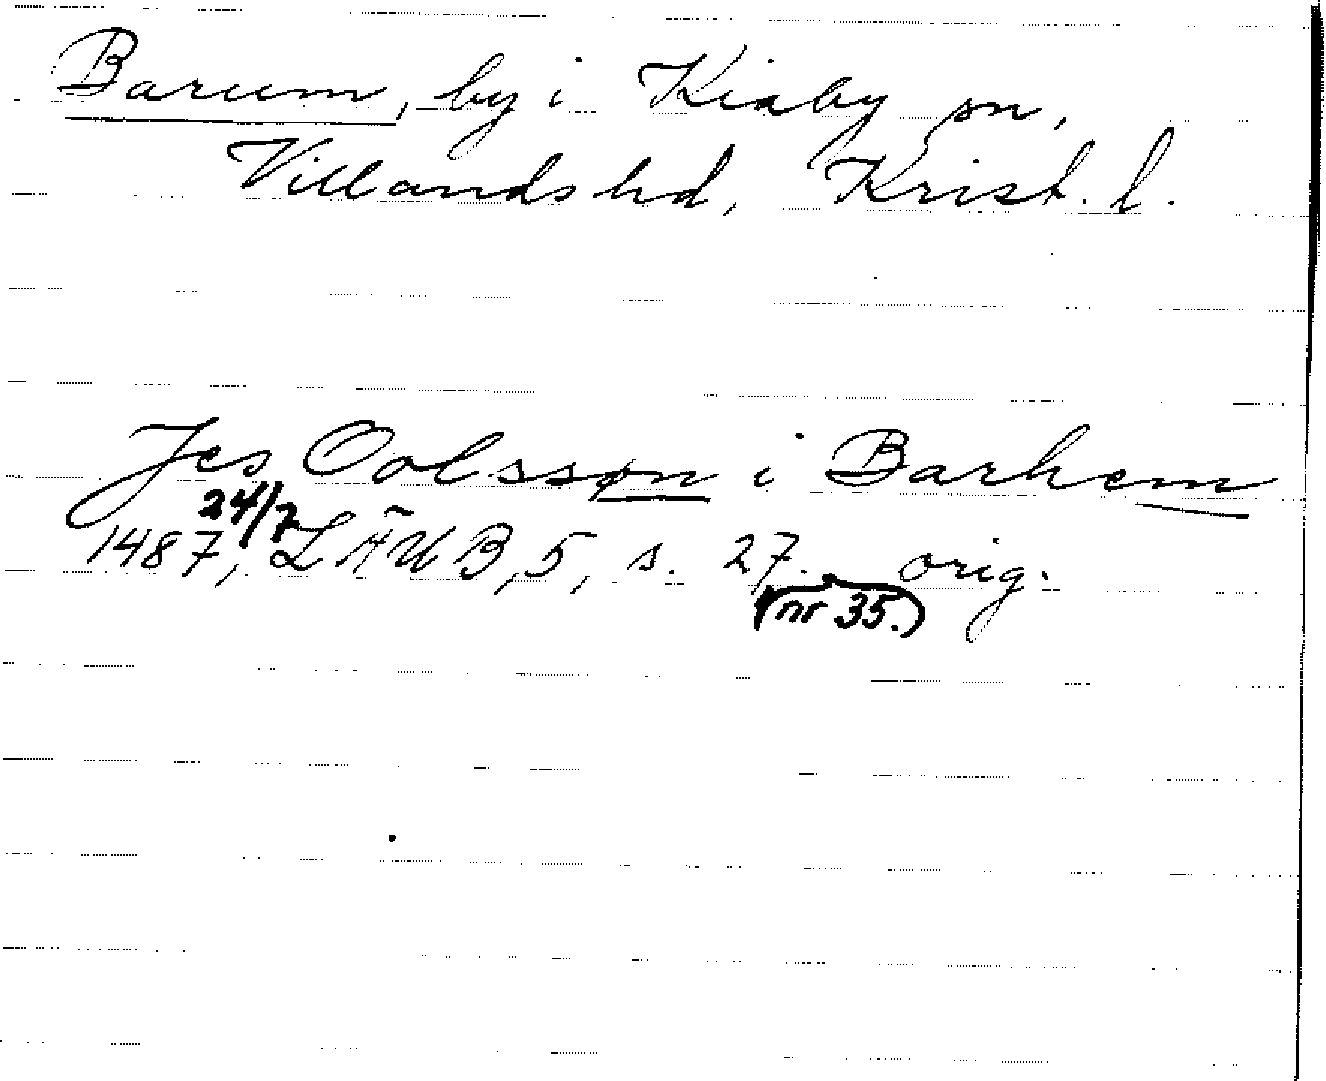 Barum, by i Kiaby sn,
Villands hd, Krist. l.
Jes Oolssøn i Barhem
24/7
1487, LÄUB, 5, s. 27. orig.
(nr 35.)